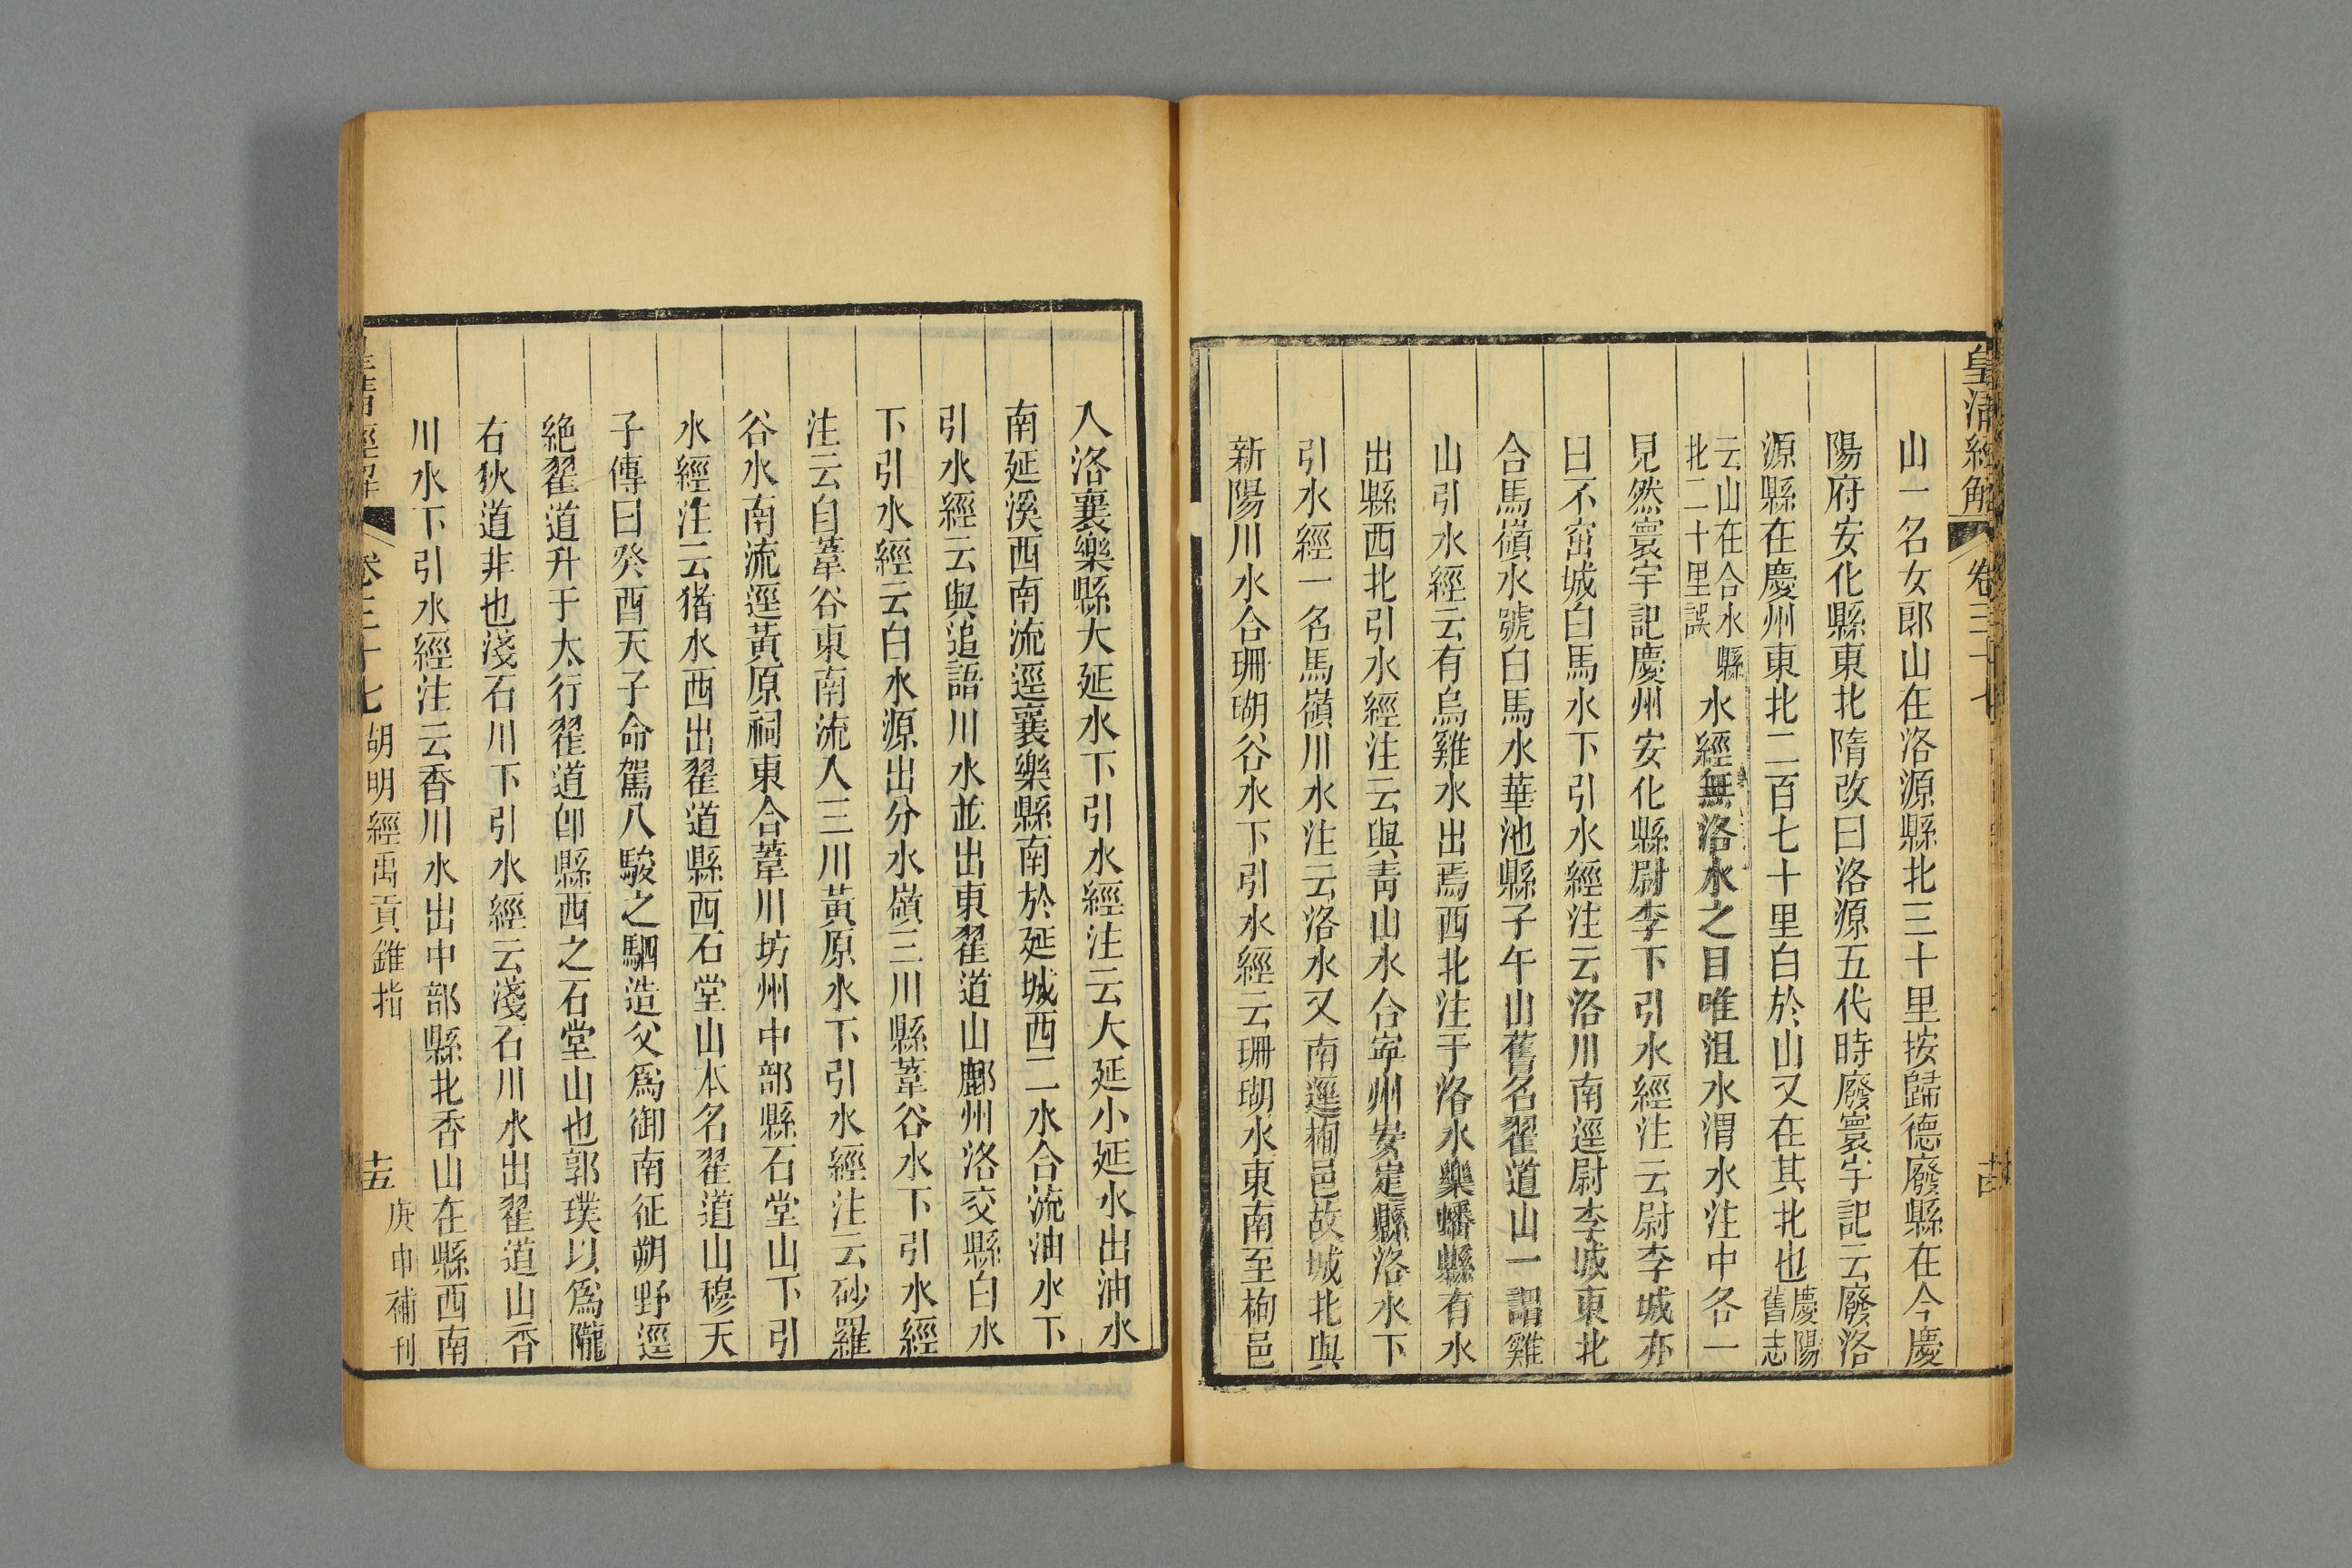 皇清經解
卷三十七
山一名女郎山在洛源縣北三十里按歸德廢縣在今慶
陽府安化縣東北隋改曰洛源五代時廢寰宇記云廢洛
源縣在慶州東北二百七十里白於山又在其北也慶陽舊志
云山在合水縣北二十里誤水經無洛水之目唯沮水渭水注中各一
見然寰宇記慶州安化縣尉李下引水經注云尉李城亦
曰不窋城白馬水下引水經注云洛川南逕尉李城東北
合馬嶺水號白馬水華池縣子午山舊名翟道山一謂雞
山引水經云有烏雞水出焉西北注于洛水樂蟠縣有水
出縣西北引水經注云與青山水合寧州安定縣洛水下
引水經一名馬嶺川水注云洛水又南逕栒邑故城北與
新陽川水合珊瑚谷水下引水經云珊瑚水東南至栒邑
入洛襄樂縣大延水下引水經注云大延小延水出油水
南延溪西南流逕襄樂縣南於延城西二水合流油水下
引水經云與追語川水並出東翟道山鄜州洛交縣白水
下引水經云白水源出分水嶺三川縣葦谷水下引水經
注云自葦谷東南流入三川黃原水下引水經注云砂羅
谷水南流逕黃原祠東合葦川坊州中部縣石堂山下引
水經注云豬水西出翟道縣西石堂山本名翟道山穆天
子傳曰癸酉天子命駕八駿之駟造父爲御南征朔野逕
絶翟道升于太行翟道卽縣西之石堂山也郭璞以爲隴
右狄道非也淺石川下引水經云淺石川水出翟道山香
川水下引水經注云香川水出中部縣北香山在縣西南
皇清經解
卷三十七
胡明經禹貢錐指
十五
庚申補刊